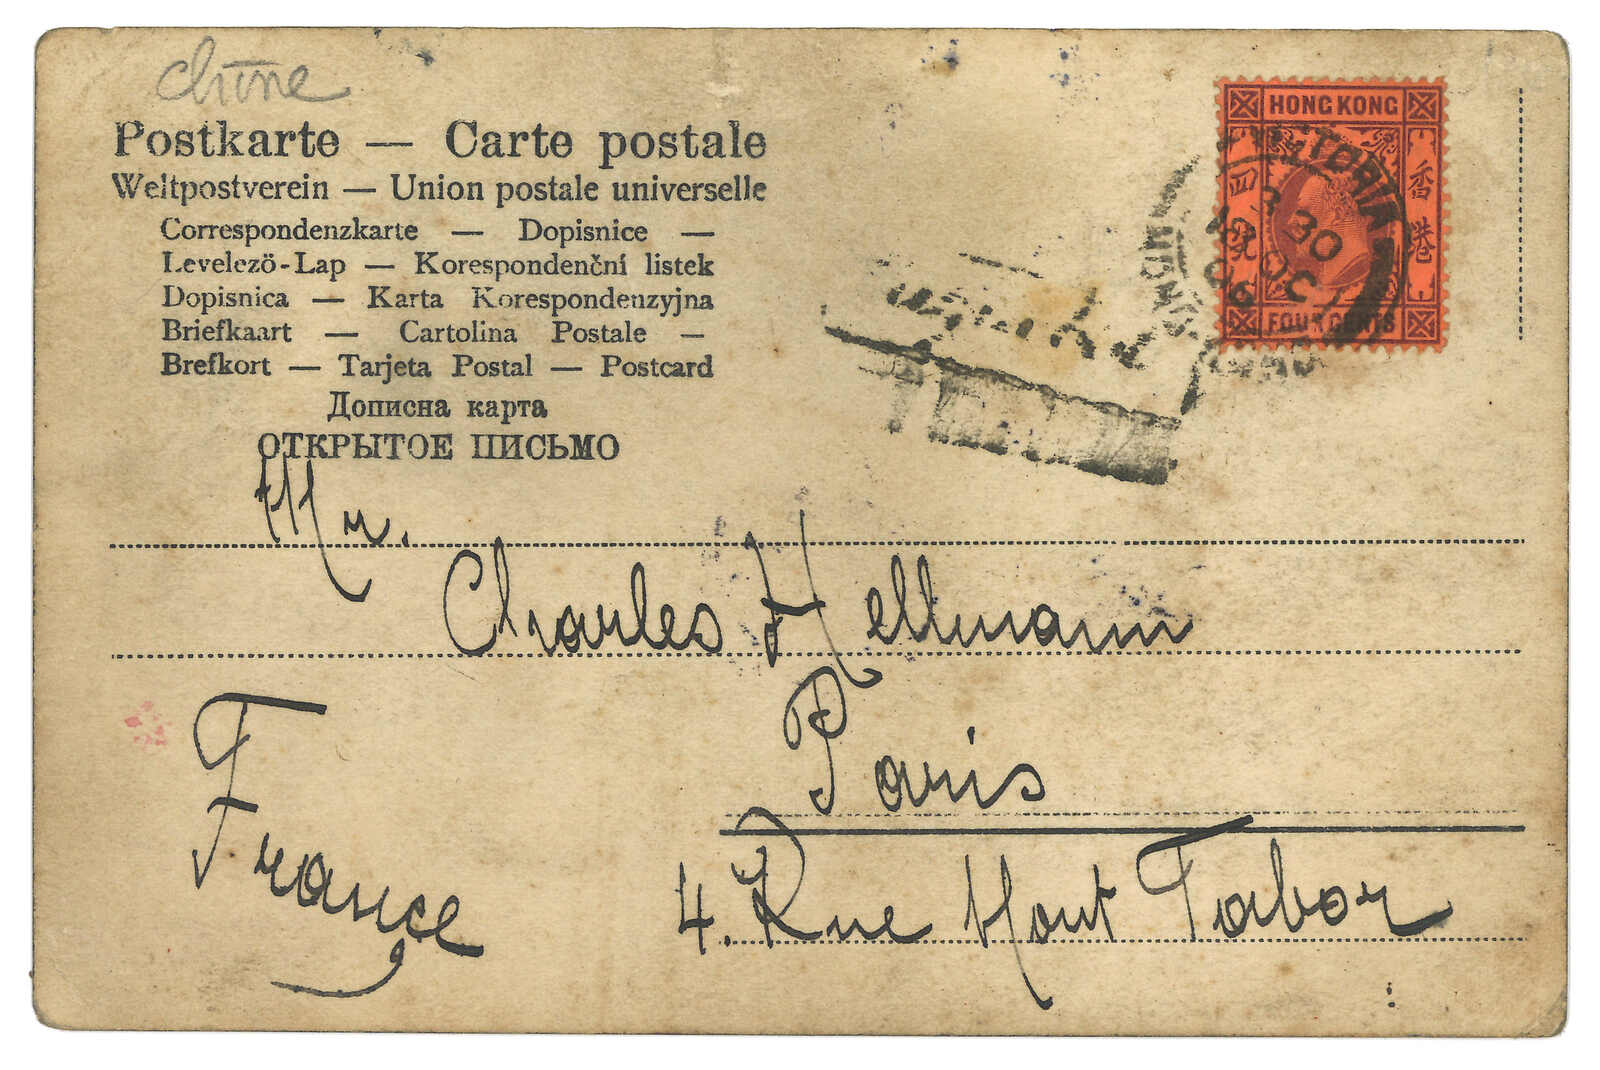 chine
Postkarte — Carte postale
Weltpostverein — Union postale universelle
Correspondenzkarte — Dopisnice —
Levelező-Lap — Korespondenční listek
Dopisnica — Karta Korespondenzyjna
Briefkaart — Cartolina Postale —
Brefkort — Tarjeta Postal — Postcard
Дописна карта
ОТКРЫТОЕ ПИСЬМО
HONG KONG
香港
四
FOUR CENTS
VICTORIA
30
OC
06
Mr.
Charles Hellmann
Paris
4. Rue Mont Tabor
France